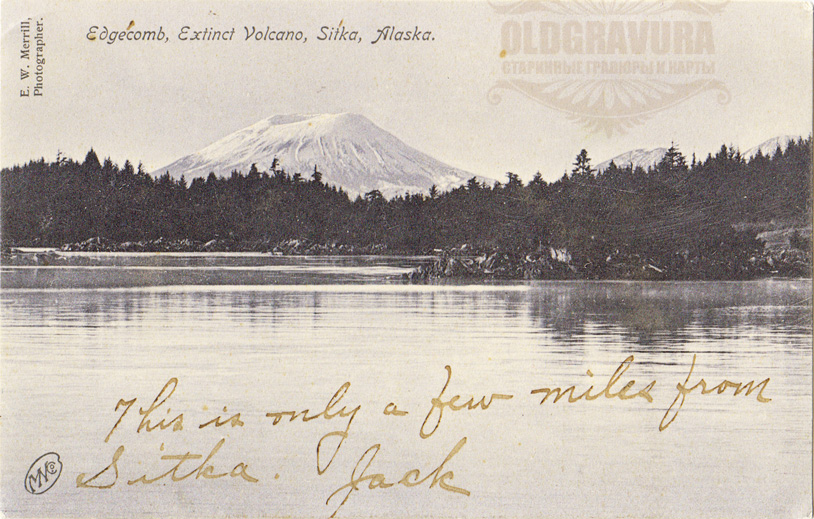 E. W. Merrill,
Photographer.
Edgecomb, Extinct Volcano, Sitka, Alaska.
OLDGRAVURA
СТАРИННЫЕ ГРАВЮРЫ И КАРТЫ
This is only a few miles from
Sitka. Jack